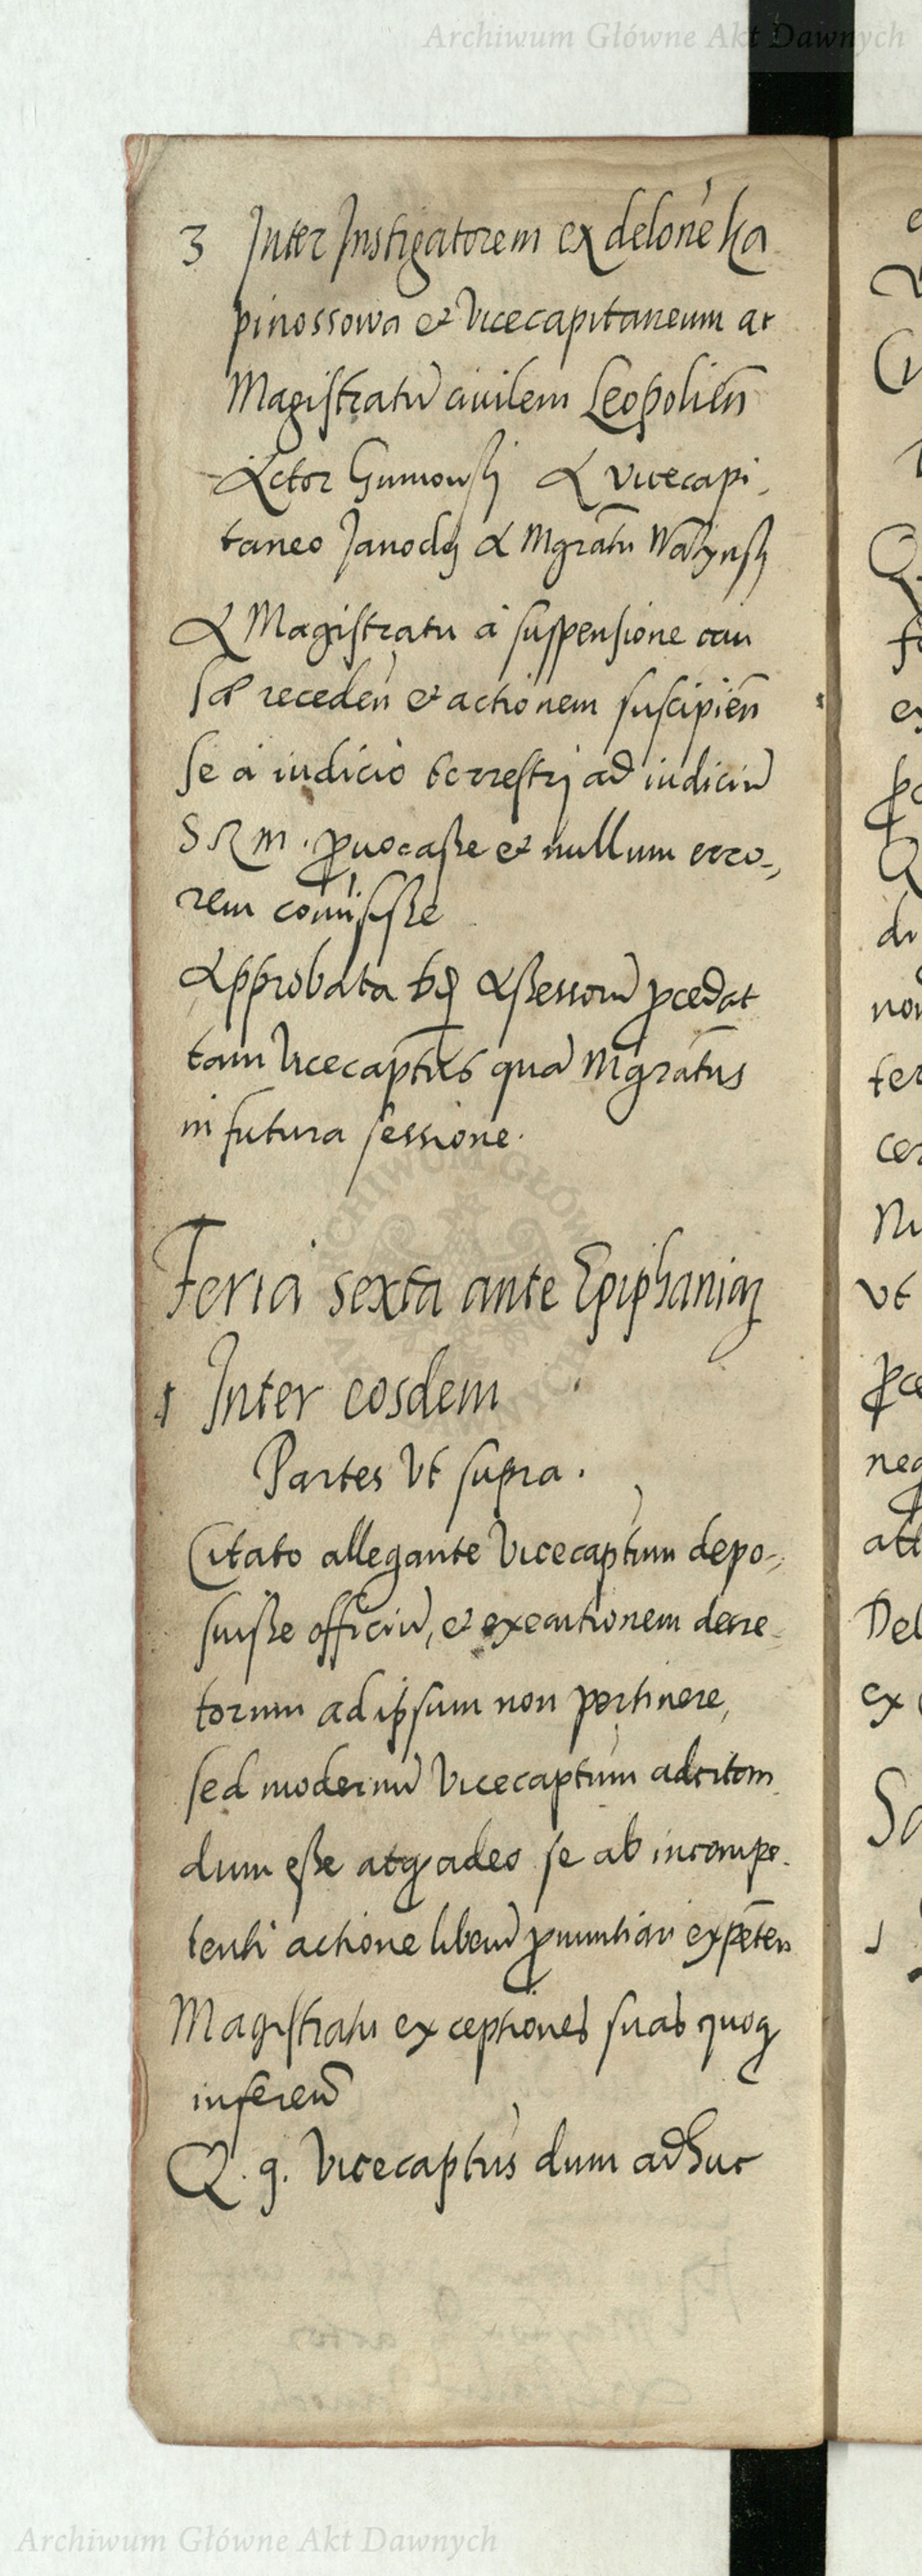 Archiwum Główne Akt Dawnych
3 Inter Instigatorem ex delone ka
pinossowa et Vicecapitaneum ac
Magistratu civilem Leopolien
Actor Gumowski A Vicecapi,
taneo A Mgratu
A Magistratu a suspensione cau
sae receden et actionem suscipien
se a iudicio terrestri ad iudiciu
S R M. provocasse et nullum erro-,
rem comisisse
Approbata Assessoru procedat
tam Vicecaptus qua Mgratus
in futura sessione.
Feria sexta ante Epiphaniaz
1 Inter eosdem
Partes Vt supra.
Citato allegante Vicecaptum depo-,
suisse officiu, et executionem decre-
torum ad ipsum non pertinere,
sed modernu Vicecaptum adcitan
dum esse atq adeo se ab incompe-
tenti actione liberu pronuntiari expeten
Magistratu exceptiones suas quoq
inferen
Q. g. Vicecaptus dum adhuc
Archiwum Główne Akt Dawnych